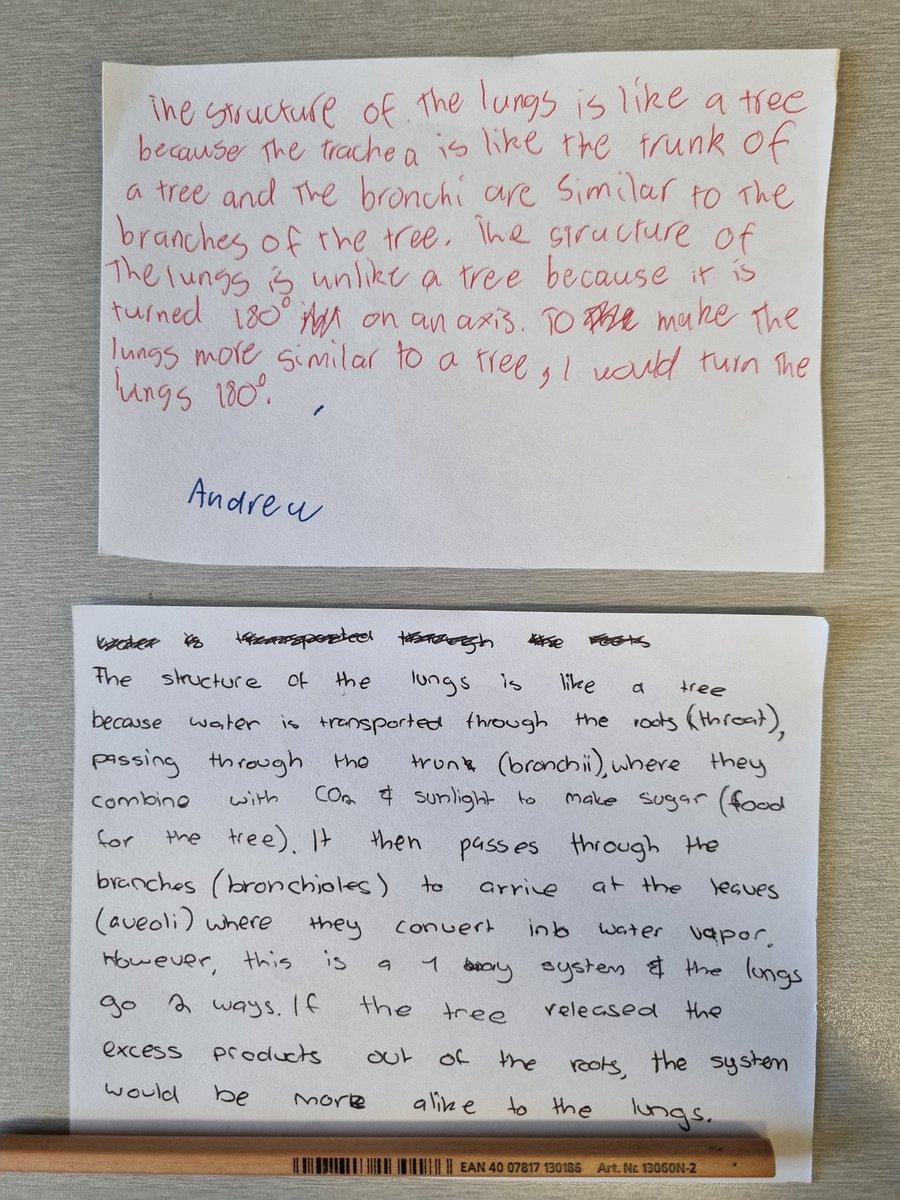 The structure of the lungs is like a tree
because the trachea is like the trunk of
a tree and the bronchi are similar to the
branches of the tree. The structure of
The lungs is unlike a tree because it is
turned 180° on an axis. To make the
lungs more similar to a tree, I would turn the
lungs 180°.
Andrew
water is transported through the roots
The structure of the lungs is like a tree
because water is transported through the roots (throat),
passing through the trunk (bronchii), where they
combine with CO2 & sunlight to make sugar (food
for the tree). It then passes through the
branches (bronchioles) to arrive at the leaves
(aveoli) where they convert into water vapor.
However, this is a 1 way system & the lungs
go 2 ways. If the tree released the
excess products out of the roots, the system
would be more alike to the lungs.
EAN 40 07817 130186 Art. Nr. 13050N-2